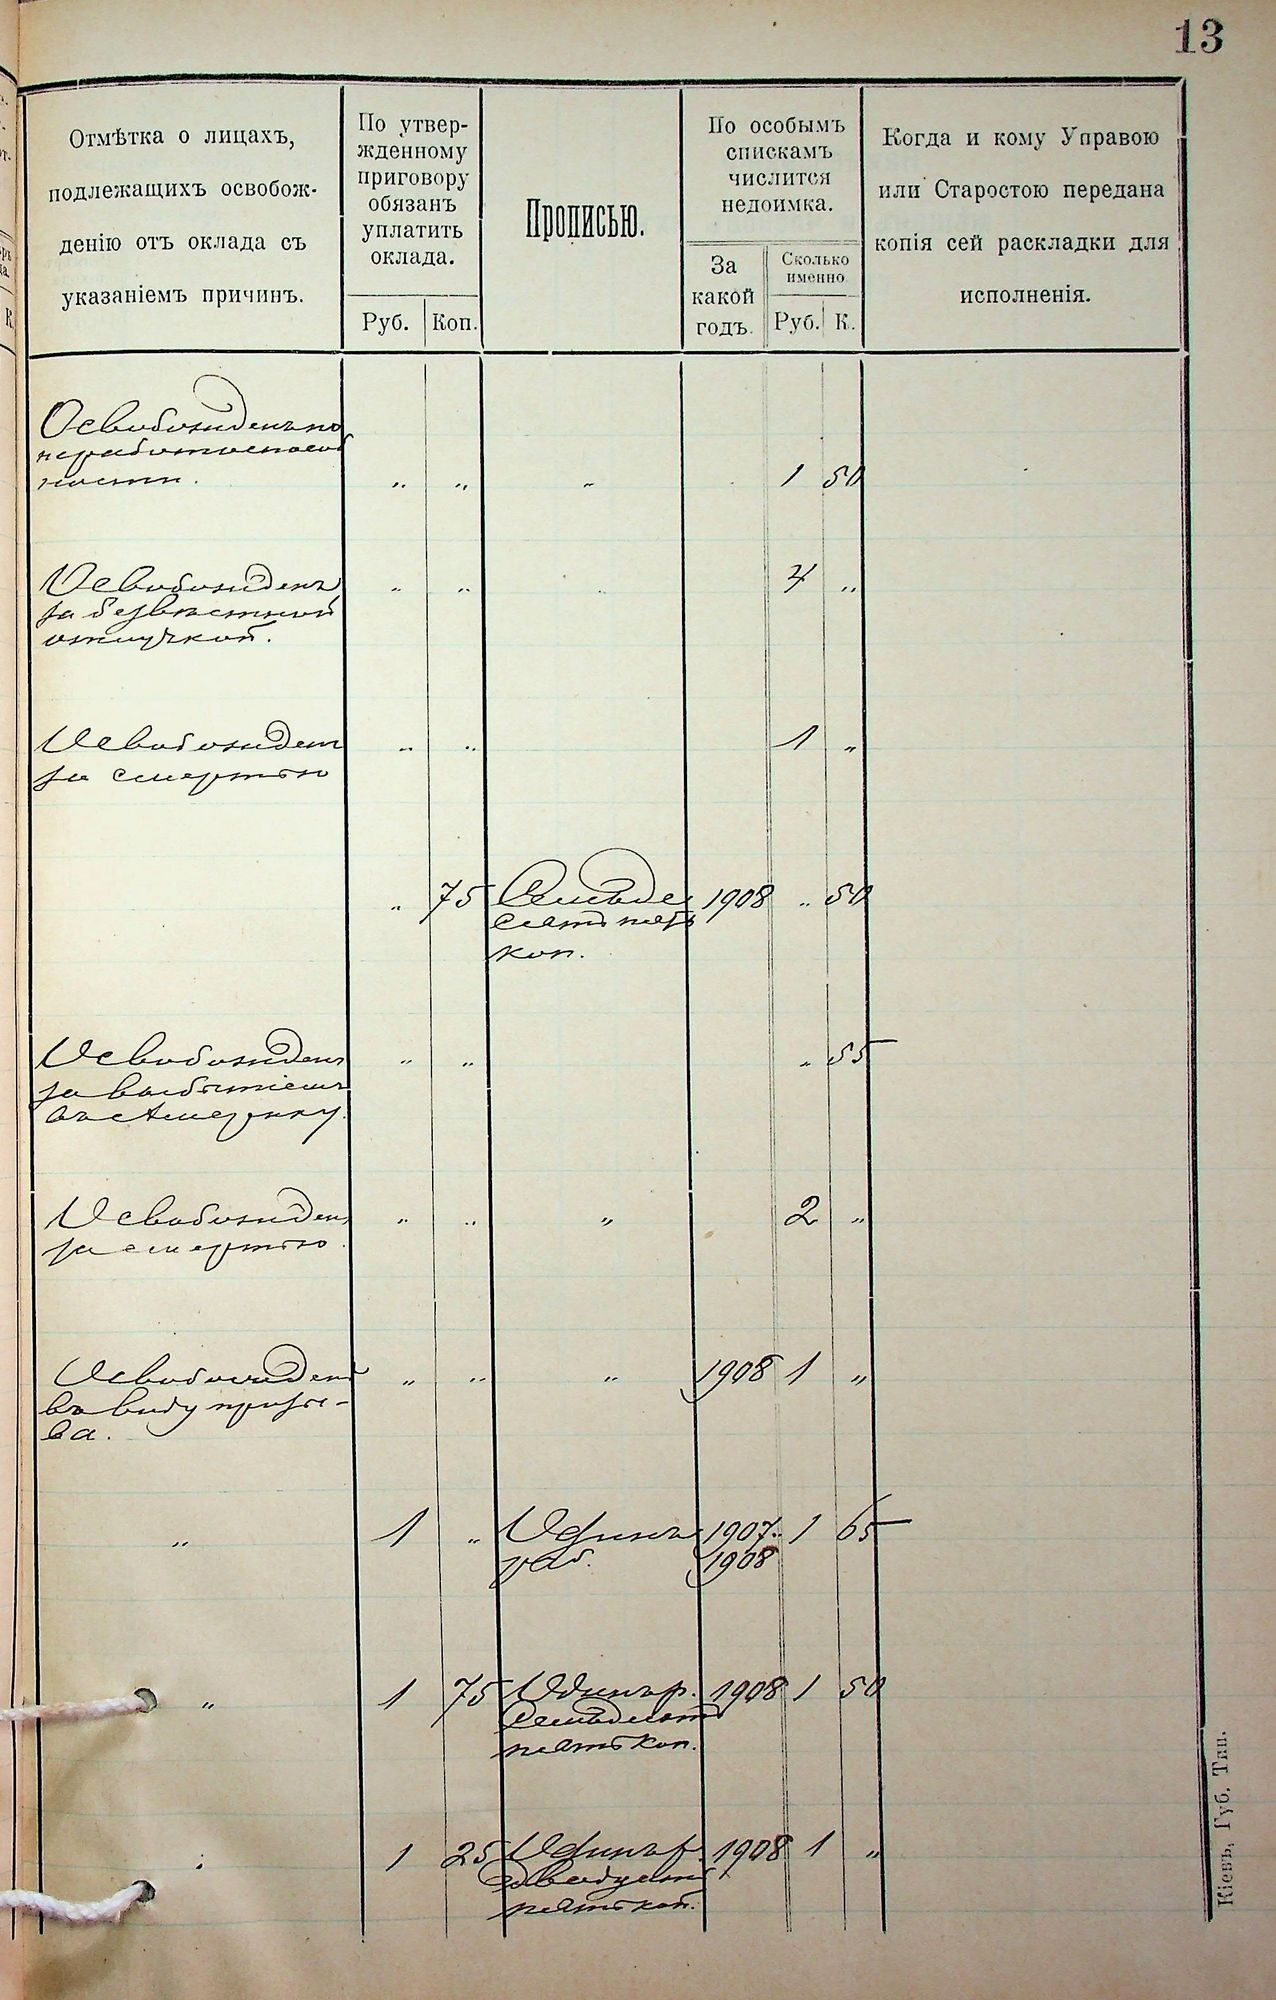 13
Отмѣтка о лицахъ,
подлежащихъ освобож-
денію отъ оклада съ
указаніемъ причинъ.
По утвер-
жденному
приговору
обязанъ
уплатить
оклада.
Руб. Коп.
Прописью.
По особымъ
спискамъ
числится
недоимка.
За
какой
годъ.
Сколько
именно
Руб. К.
Когда и кому Управою
или Старостою передана
копія сей раскладки для
исполненія.
Освобожденъ по
неработоспособ
ности. " " " 1 50
Освобожденъ " " " 4 "
за безвѣстной
отлучкой.
Освобожденъ " " 1 "
за смертью
" 75 Семьде 1908 " 50
сятъ пять
коп.
Освобожденъ " " " 55
за выбытіемъ
въ Америку.
Освобожденъ " " " 2 "
за смертью.
Освобожденъ " " " 1908 1 "
въ виду призы-
ва.
" 1 " Одинъ 1907. 1 65
руб. 1908
" 1 75 Одинъ р. 1908 1 50
семьдесятъ
пять коп.
" 1 25 Одинъ р. 1908 1 "
двадцать
пять коп.
Кіевъ, Губ. Тип.